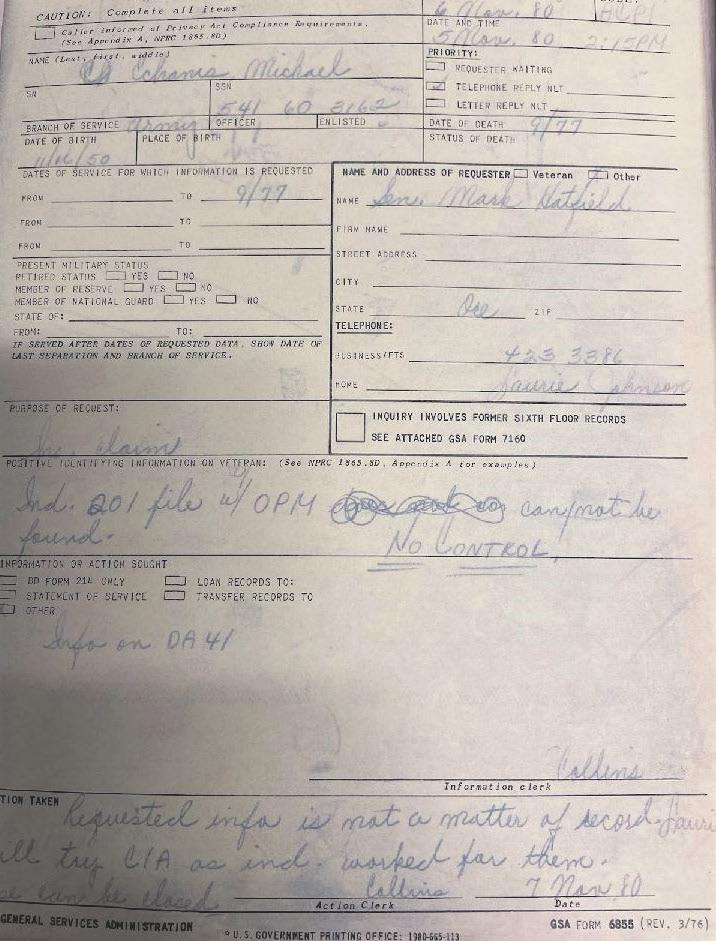 6 Nov. 80
CAUTION: Complete all items
DATE AND TIME
Caller informed of Privacy Act Compliance Requirements.
(See Appendix A, NPRC 1865.8D)
5 Nov. 80 2:15PM
NAME (Last, first, middle)
Echanis Michael
PRIORITY:
REQUESTER WAITING
TELEPHONE REPLY NLT
LETTER REPLY NLT
SN
SSN
541 60 3162
BRANCH OF SERVICE Army
OFFICER
ENLISTED
DATE OF DEATH 9/77
DATE OF BIRTH
PLACE OF BIRTH
STATUS OF DEATH
11/16/50
DATES OF SERVICE FOR WHICH INFORMATION IS REQUESTED
FROM TO 9/77
FROM TO
FROM TO
PRESENT MILITARY STATUS
RETIRED STATUS YES NO
MEMBER OF RESERVE YES NO
MEMBER OF NATIONAL GUARD YES NO
STATE OF:
FROM: TO:
IF SERVED AFTER DATES OF REQUESTED DATA, SHOW DATE OF
LAST SEPARATION AND BRANCH OF SERVICE.
NAME AND ADDRESS OF REQUESTER Veteran Other
NAME Sen. Mark Hatfield
FIRM NAME
STREET ADDRESS
CITY
STATE Ore ZIP
TELEPHONE:
BUSINESS/FTS 423 3386
HOME Laurie Johnson
PURPOSE OF REQUEST:
claim
INQUIRY INVOLVES FORMER SIXTH FLOOR RECORDS
SEE ATTACHED GSA FORM 7160
POSITIVE IDENTIFYING INFORMATION ON VETERAN: (See NPRC 1865.8D, Appendix A for examples)
Ind. 201 file w/ OPM can/not be
found.
NO CONTROL,
INFORMATION OR ACTION SOUGHT
DD FORM 214 ONLY LOAN RECORDS TO:
STATEMENT OF SERVICE TRANSFER RECORDS TO
OTHER
Info on DA 41
Collins
Information clerk
TION TAKEN
Requested info is not a matter of record. Lauri
ill try CIA as ind. worked for them.
se can be closed Collins 7 Nov 80
Action Clerk Date
GENERAL SERVICES ADMINISTRATION
° U.S. GOVERNMENT PRINTING OFFICE: 1980-665-113
GSA FORM 6855 (REV. 3/76)